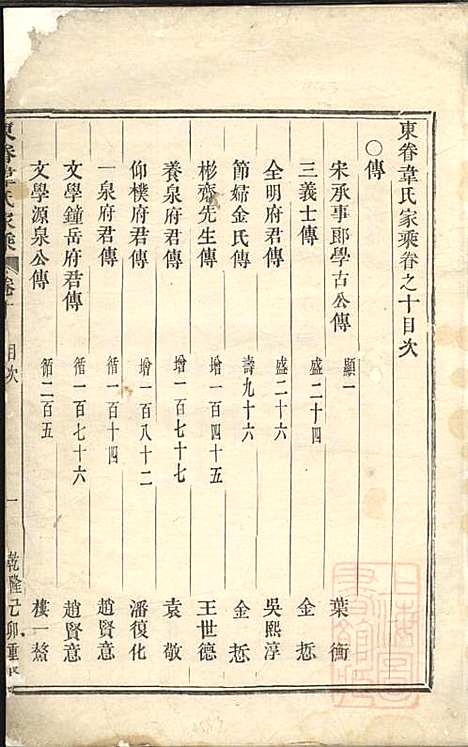 東眷韋氏家乘卷之十目次
○傳
宋承事郎學古公傳 顯一 葉衡
三義士傳 盛二十四 金悊
全明府君傳 盛二十六 吳熙淳
節婦金氏傳 壽九十六 金悊
彬齋先生傳 增一百四十五 王世德
養泉府君傳 增一百七十七 袁敬
仰樸府君傳 增一百八十二 潘復化
一泉府君傳 循一百十四 趙賢意
文學鐘岳府君傳 循一百七十六 趙賢意
文學源泉公傳 循二百五 樓一
東眷韋氏家乘 卷十 目次 一 乾隆己卯重